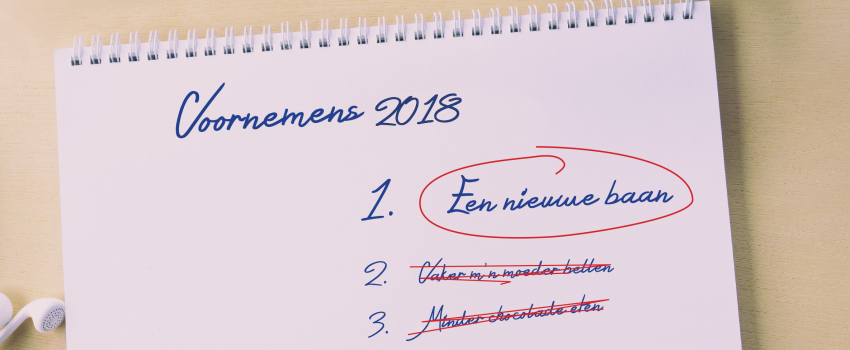 Voornemens 2018
1. Een nieuwe baan
2. Vaker m'n moeder bellen
3. Minder chocolade eten